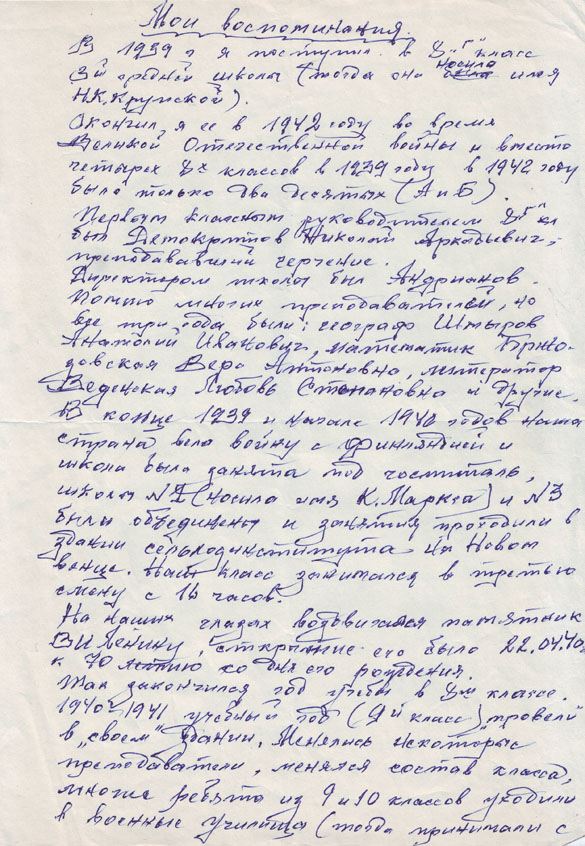 Мои воспоминания.
В 1939 г я поступил в 8"Г" класс
3й средней школы (тогда она носила имя
Н.К.Крупской).
Окончил я ее в 1942 году во время
Великой Отечественной войны и вместо
четырех 8х классов в 1939 году в 1942 году
было только два десятых (А и Б).
Первым классным руководителем 8"Г" кл
был Детокритов Николай Аркадьевич,
преподававший черчение.
Директором школы был Андрианов.
Помню многих преподавателей, но
все три года были: географ Штыров
Анатолий Иванович, математик
Вера Антоновна, литератор
Веденская Любовь Степановна и другие.
В конце 1939 и начале 1940 годов наша
страна вела войну с Финляндией и
школа была занята под госпиталь,
школы №2 (носила имя К.Маркса) и №3
были объединены и занятия проходили в
здании сельхозинститута на Новом
венце. Наш класс занимался в третью
смену с 16 часов.
На наших глазах воздвигался памятник
В.И.Ленину, открытие его было 22.04.40г
к 70летию со дня его рождения.
Так закончился год учебы в 8м классе.
1940-1941 учебный год (9й класс) провели
в "своем" здании. Менялись некоторые
преподаватели, менялся состав класса,
многие ребята из 9 и 10 классов уходили
в военные училища (тогда принимали с